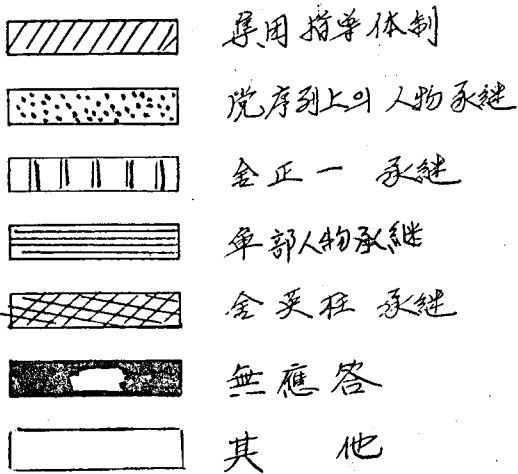 集団指導体制
党序列上의 人物承継
金正一 承継
軍部人物承継
金英柱 承継
無應答
其 他